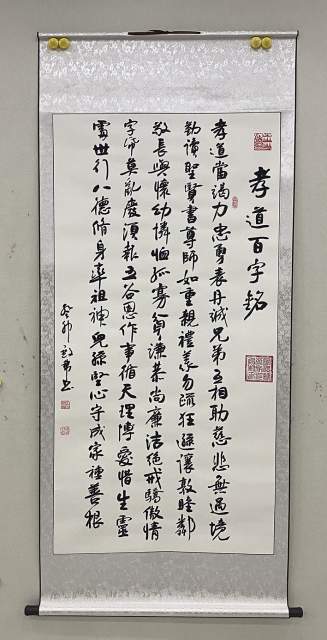 孝道百字銘
孝道當竭力忠勇表丹誠兄弟互相助慈悲無過境
勤讀聖賢書尊師如重親禮義勿疏狂遜讓敦睦鄰
敬長與懷幼憐恤孤寡貧謙恭尚廉潔絕戒驕傲情
字紙莫亂廢須報五谷恩作事循天理博愛惜生靈
處世行八德脩身率祖神兒孫堅心守成家種善根
癸卯